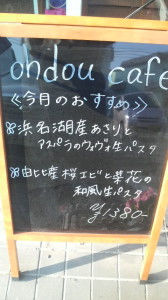 ondou cafe
≪今月のおすすめ≫
※浜名湖産あさりと
アスパラのヴィヴォ生パスタ
※由比産桜エビと菜花の
和風生パスタ
各¥1380-